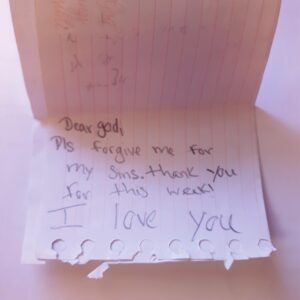 Dear god,
Pls forgive me for
my sins. thank you
for this week!
I love you